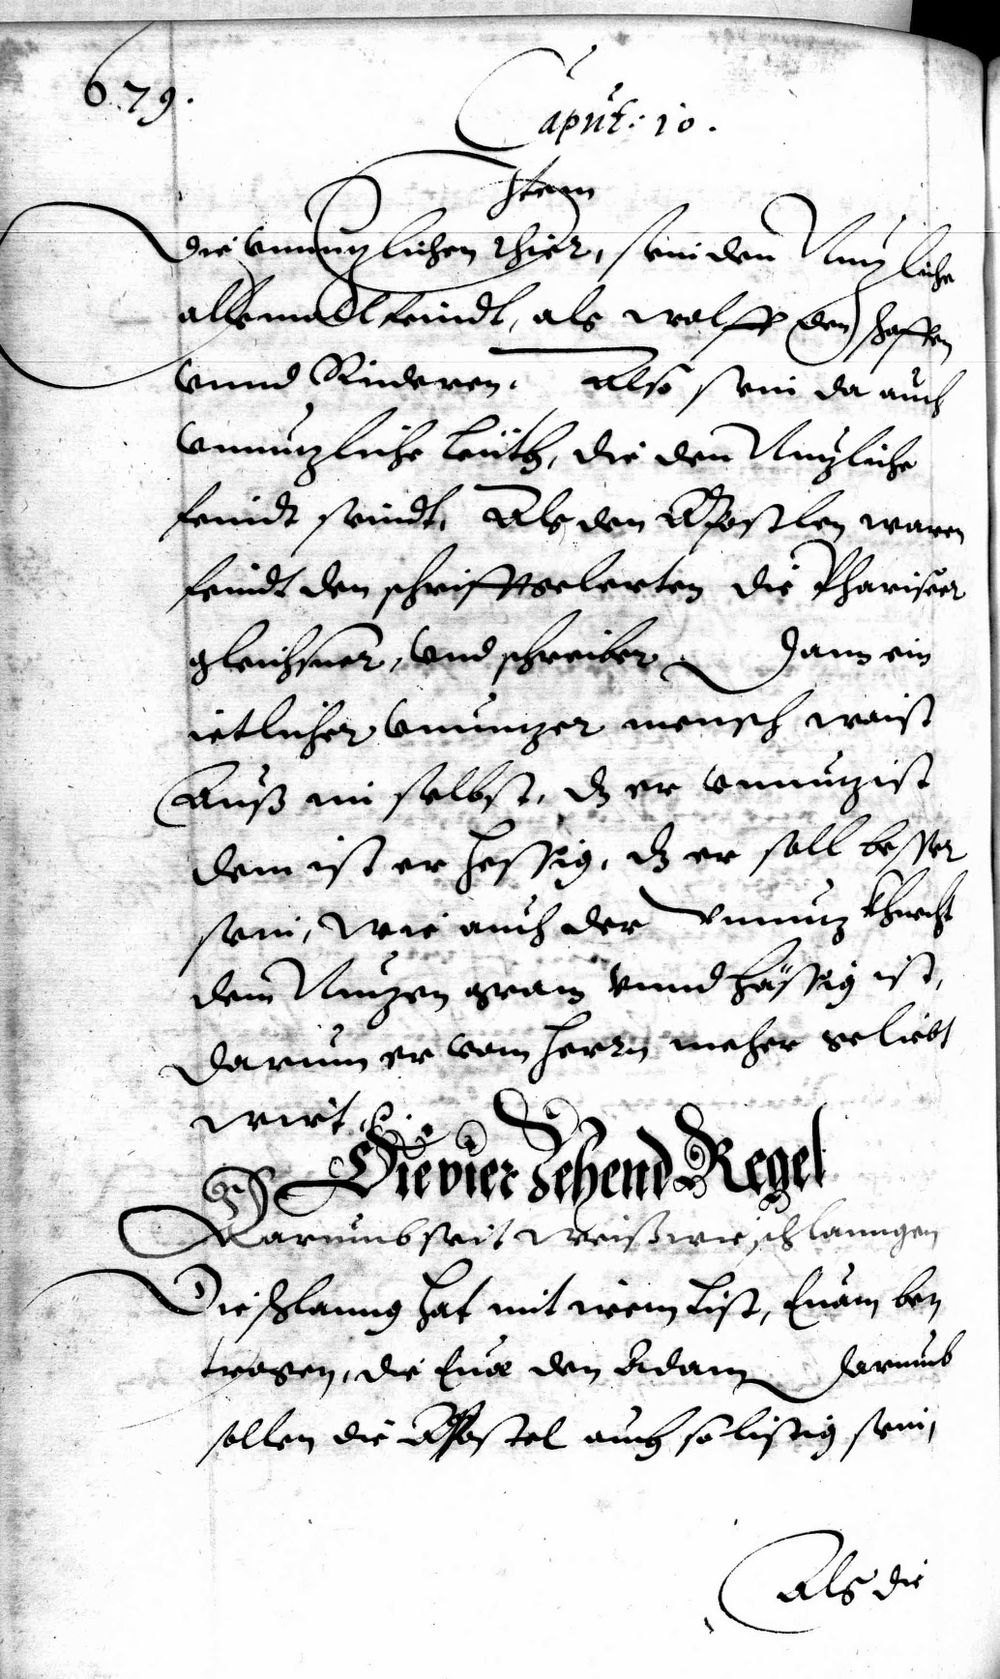 679.
Caput: 10.
Item
Die vnnutzlichen thier, sein den Nutzliche
allemall feindt, als wolff den schaffen
vnnd Rinderen. Also sein da auch
vnnutzliche leüth, die den Nutzliche
feindt seindt, Als den Apostlen waren
feindt den schrifftgelerten die Phariseer
gleichsner, vnd schreiber. Dann ein
ietlicher vnnutzer mensch waist
Auß im selbst, dz er vnnutz ist
dem ist er hessig, dz er soll besser
sein, wie auch der vnnutz khnecht
dem Nutzen gram vnnd hässig ist,
darumm er vom herrn meher geliebt
wirt.
Die vierzehend Regel
Darumb seit weiß wie schlanngen
Die schlanng hat mit irem list, Euam be
trogen, die Eua den Adam Darumb
sollen die Apostel auch so listig sein,
Als die